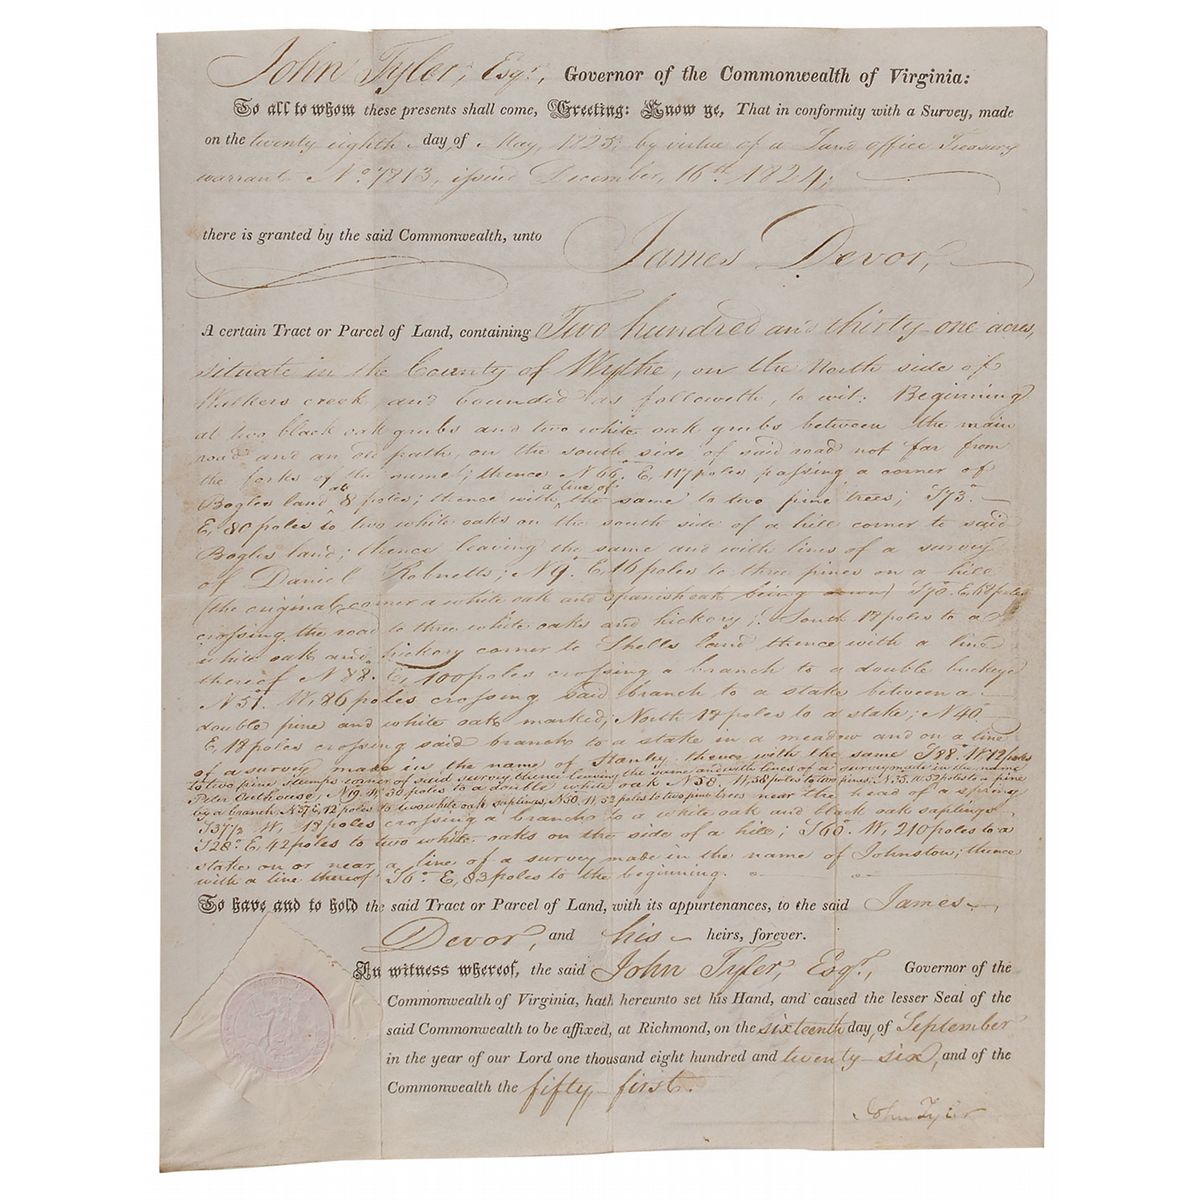 John Tyler, Esqr., Governor of the Commonwealth of Virginia:
To all to whom these presents shall come, Greeting: Know ye, That in conformity with a Survey, made
on the twenty eighth day, of May, 1825, by virtue of a Land office Treasury
warrant No 7813, issued December, 16th 1824;
there is granted by the said Commonwealth, unto James Devor,
A certain Tract or Parcel of Land, containing Two hundred and thirty-one acres,
situate in the County of Wythe, on the North side of
Walkers creek and bounded as followeth, to wit: Beginning
at two black oak grubs and two white oak grubs between the main
road and an old path, on the south side of said road not far from
the forks of the same; thence N 66° E, 117 poles passing a corner of
Bogles land at 8 poles; thence with a line of the same to two pine trees; S 73°
E, 80 poles to two white oaks on the south side of a hill corner to said
Bogles land; thence leaving the same and with lines of a survey
of Daniel Robnetts; N 9° E, 16 poles to three pines on a hill
(the original corner a white oak and spanish oak being down) S 70° E, 68 poles
crossing the road to three white oaks and hickory; South 18 poles to a
white oak and hickory corner to Shells land thence with a line
thereof N 88° E, 100 poles crossing a branch to a double buckeye
N 51° W, 86 poles crossing said branch to a stake between a
double pine and white oak marked; North 18 poles to a stake; N 40°
E, 18 poles crossing said branch to a stake in a meadow and on a line
of a survey made in the name of Stanley thence with the same S 88° W 72 poles
to two pine stumps corner of said survey thence leaving the same and with lines of a survey made in the name
Peter N 9° W 30 poles to a double white oak N 58° W, 58 poles to two pines, N 35° W 52 poles to a pine
by a branch, N 7° E, 12 poles to two white oak saplings, N 50° W, 52 poles to two pine trees near the head of a spring
S 37 1/2° W, 18 poles crossing a branch to a white oak and black oak saplings
S 28° E, 42 poles to two white oaks on the side of a hill; S 60° W, 210 poles to a
stake on or near a line of a survey made in the name of Johnston; thence
with a line thereof S 6° E, 83 poles to the beginning.
To have and to hold the said Tract or Parcel of Land, with its appurtenances, to the said James
Devor, and his heirs, forever.
In witness whereof, the said John Tyler, Esqr., Governor of the
Commonwealth of Virginia, hath hereunto set his Hand, and caused the lesser Seal of the
said Commonwealth to be affixed, at Richmond, on the sixteenth day, of September
in the year of our Lord one thousand eight hundred and twenty-six, and of the
Commonwealth the fifty-first.
John Tyler